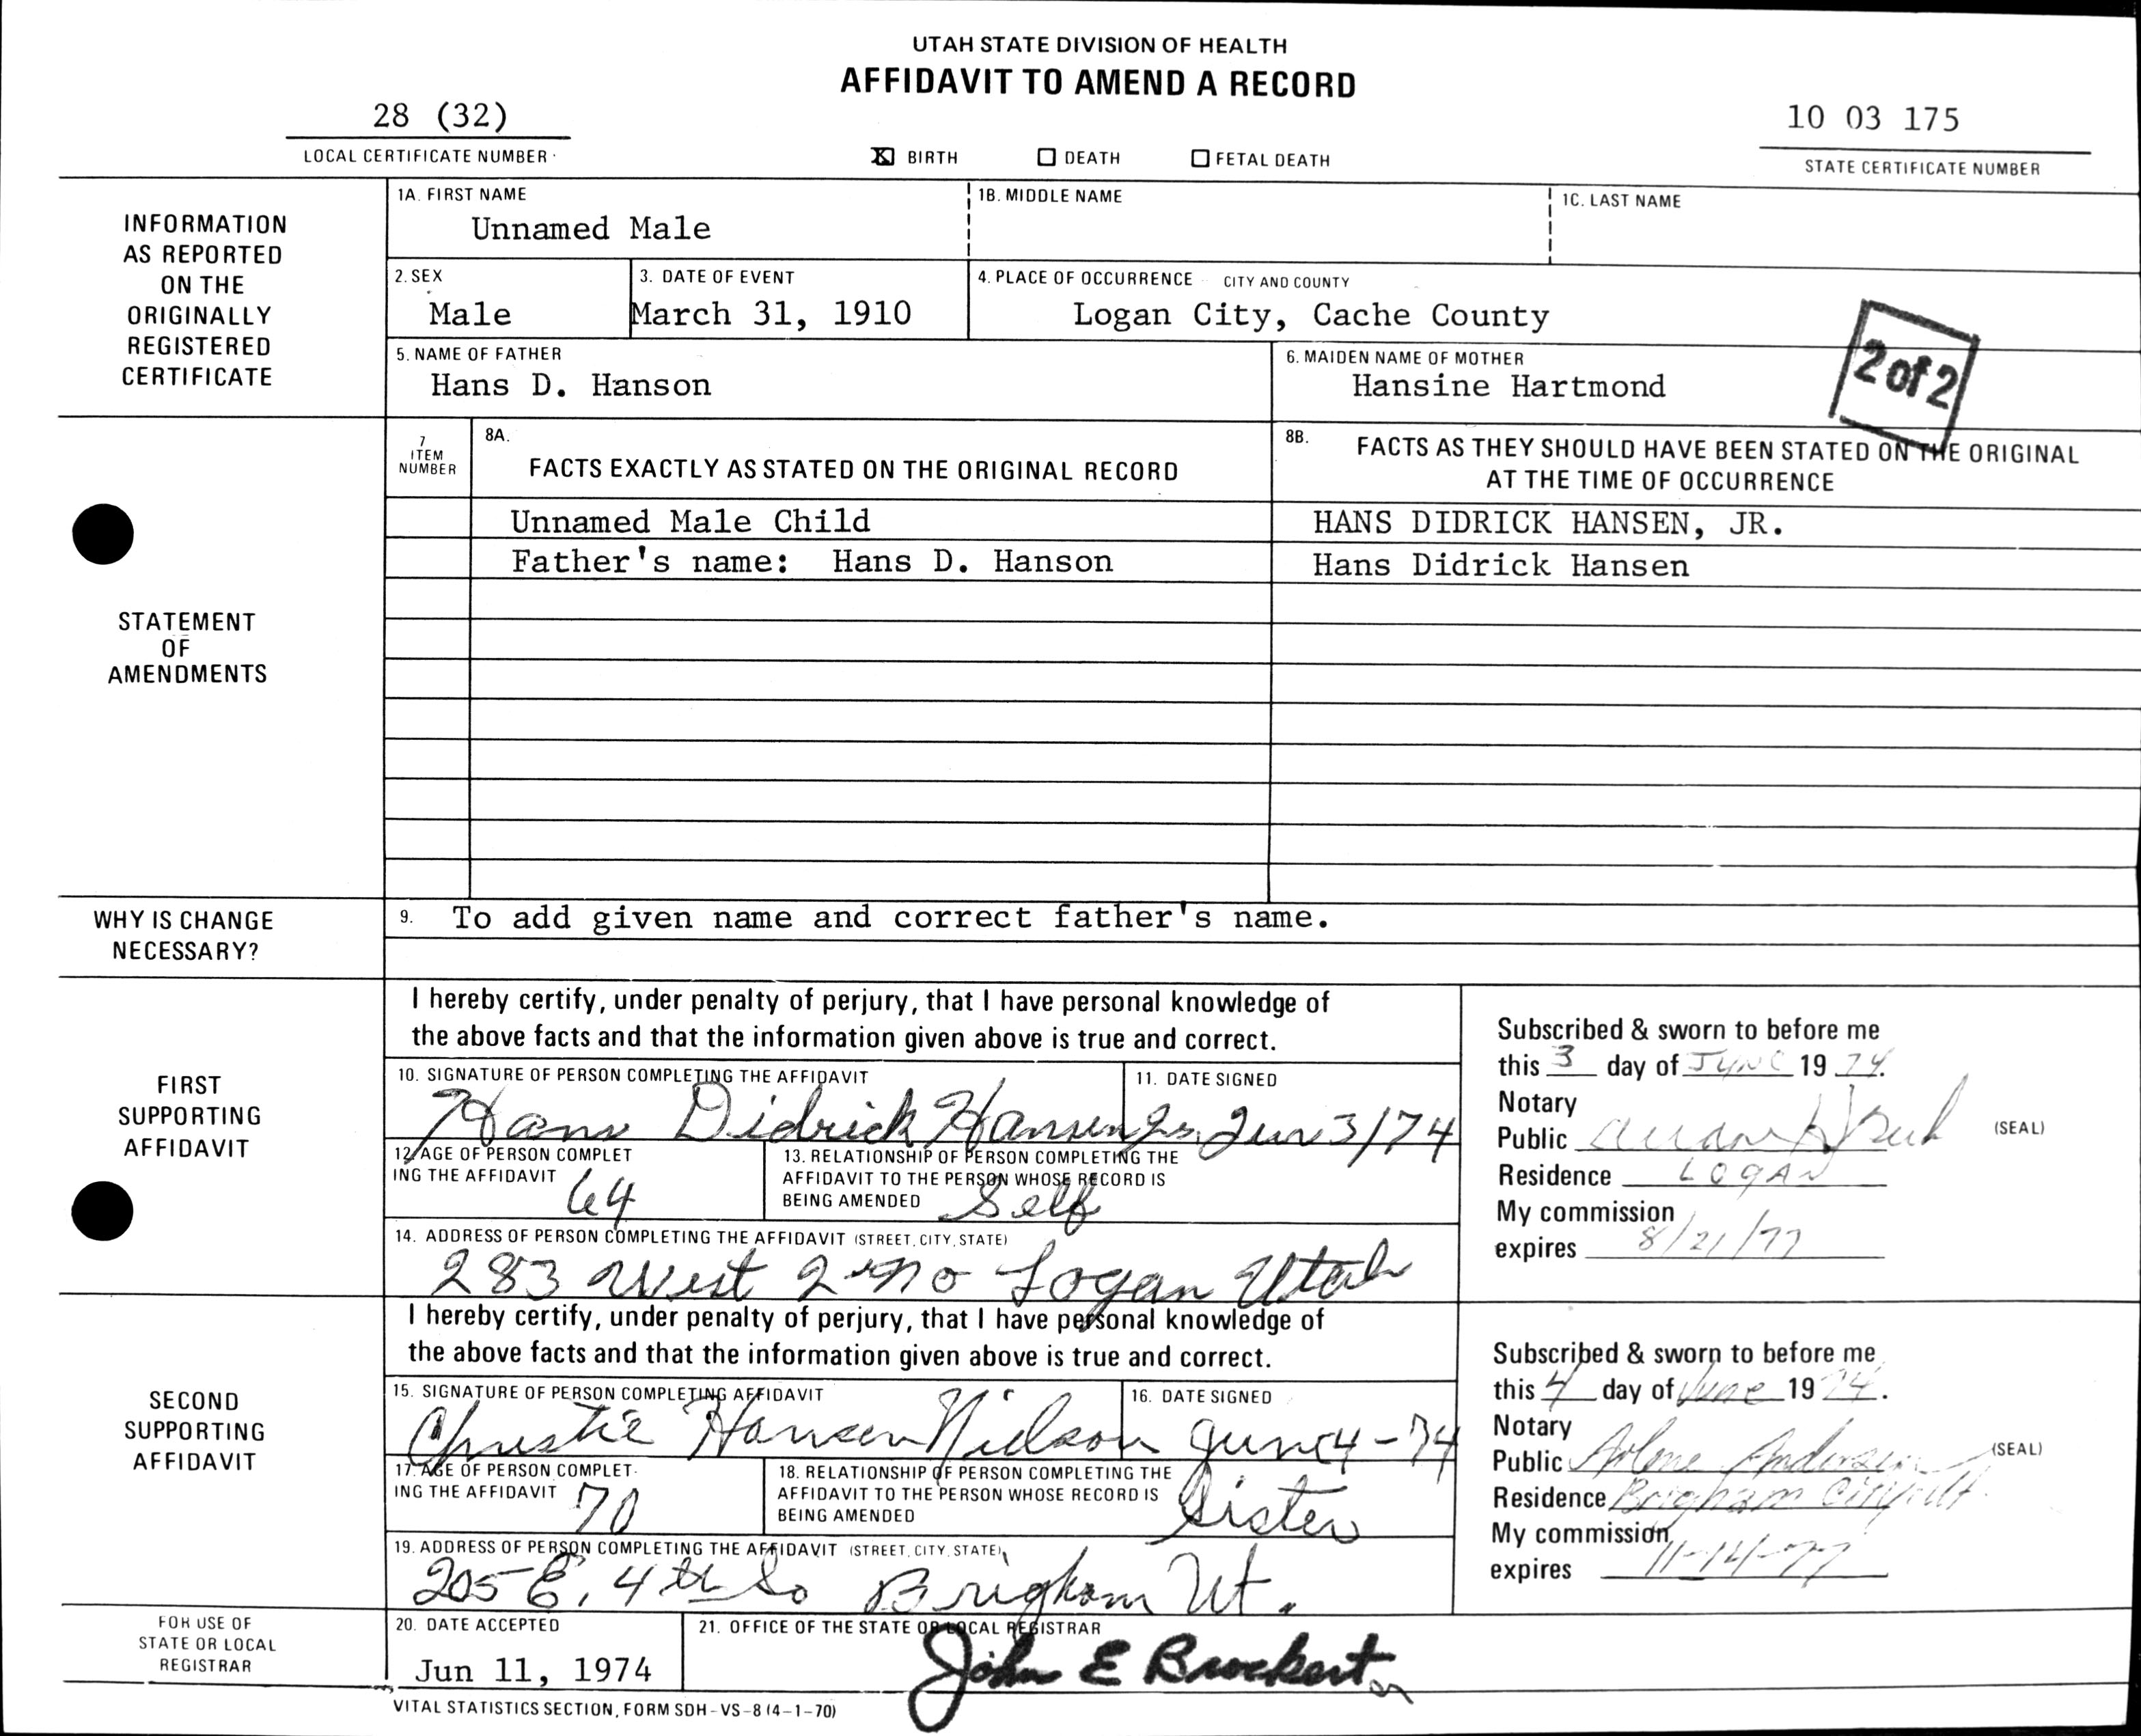 UTAH STATE DIVISION OF HEALTH
AFFIDAVIT TO AMEND A RECORD
28 (32)
LOCAL CERTIFICATE NUMBER
10 03 175
STATE CERTIFICATE NUMBER
X BIRTH DEATH FETAL DEATH
INFORMATION
AS REPORTED
ON THE
ORIGINALLY
REGISTERED
CERTIFICATE
1A. FIRST NAME 1B. MIDDLE NAME 1C. LAST NAME
Unnamed Male
2. SEX 3. DATE OF EVENT 4. PLACE OF OCCURRENCE CITY AND COUNTY
Male March 31, 1910 Logan City, Cache County
5. NAME OF FATHER 6. MAIDEN NAME OF MOTHER
Hans D. Hanson Hansine Hartmond
2 of 2
STATEMENT
OF
AMENDMENTS
7
ITEM
NUMBER
8A.
FACTS EXACTLY AS STATED ON THE ORIGINAL RECORD
8B. FACTS AS THEY SHOULD HAVE BEEN STATED ON THE ORIGINAL
AT THE TIME OF OCCURRENCE
Unnamed Male Child HANS DIDRICK HANSEN, JR.
Father's name: Hans D. Hanson Hans Didrick Hansen
WHY IS CHANGE
NECESSARY?
9. To add given name and correct father's name.
FIRST
SUPPORTING
AFFIDAVIT
I hereby certify, under penalty of perjury, that I have personal knowledge of
the above facts and that the information given above is true and correct.
10. SIGNATURE OF PERSON COMPLETING THE AFFIDAVIT 11. DATE SIGNED
Hans Didrick Hansen Jr. Jun 3/74
12. AGE OF PERSON COMPLET
ING THE AFFIDAVIT 64
13. RELATIONSHIP OF PERSON COMPLETING THE
AFFIDAVIT TO THE PERSON WHOSE RECORD IS
BEING AMENDED Self
14. ADDRESS OF PERSON COMPLETING THE AFFIDAVIT (STREET, CITY, STATE)
283 West 2nd No Logan Utah
Subscribed & sworn to before me
this 3 day of JUNE 19 74.
Notary
Public (SEAL)
Residence LOGAN
My commission
expires 8/21/77
SECOND
SUPPORTING
AFFIDAVIT
I hereby certify, under penalty of perjury, that I have personal knowledge of
the above facts and that the information given above is true and correct.
15. SIGNATURE OF PERSON COMPLETING AFFIDAVIT 16. DATE SIGNED
Christie Hansen Nielson June 4-74
17. AGE OF PERSON COMPLET-
ING THE AFFIDAVIT 70
18. RELATIONSHIP OF PERSON COMPLETING THE
AFFIDAVIT TO THE PERSON WHOSE RECORD IS
BEING AMENDED Sister
19. ADDRESS OF PERSON COMPLETING THE AFFIDAVIT (STREET, CITY, STATE)
205 E. 4th So Brigham Ut.
Subscribed & sworn to before me
this 4 day of June 19 74.
Notary
Public Arlene Andersen (SEAL)
Residence Brigham City, Ut
My commission
expires
FOR USE OF
STATE OR LOCAL
REGISTRAR
20. DATE ACCEPTED
Jun 11, 1974
21. OFFICE OF THE STATE OR LOCAL REGISTRAR
John E Brockert
VITAL STATISTICS SECTION, FORM SDH-VS-8 (4-1-70)